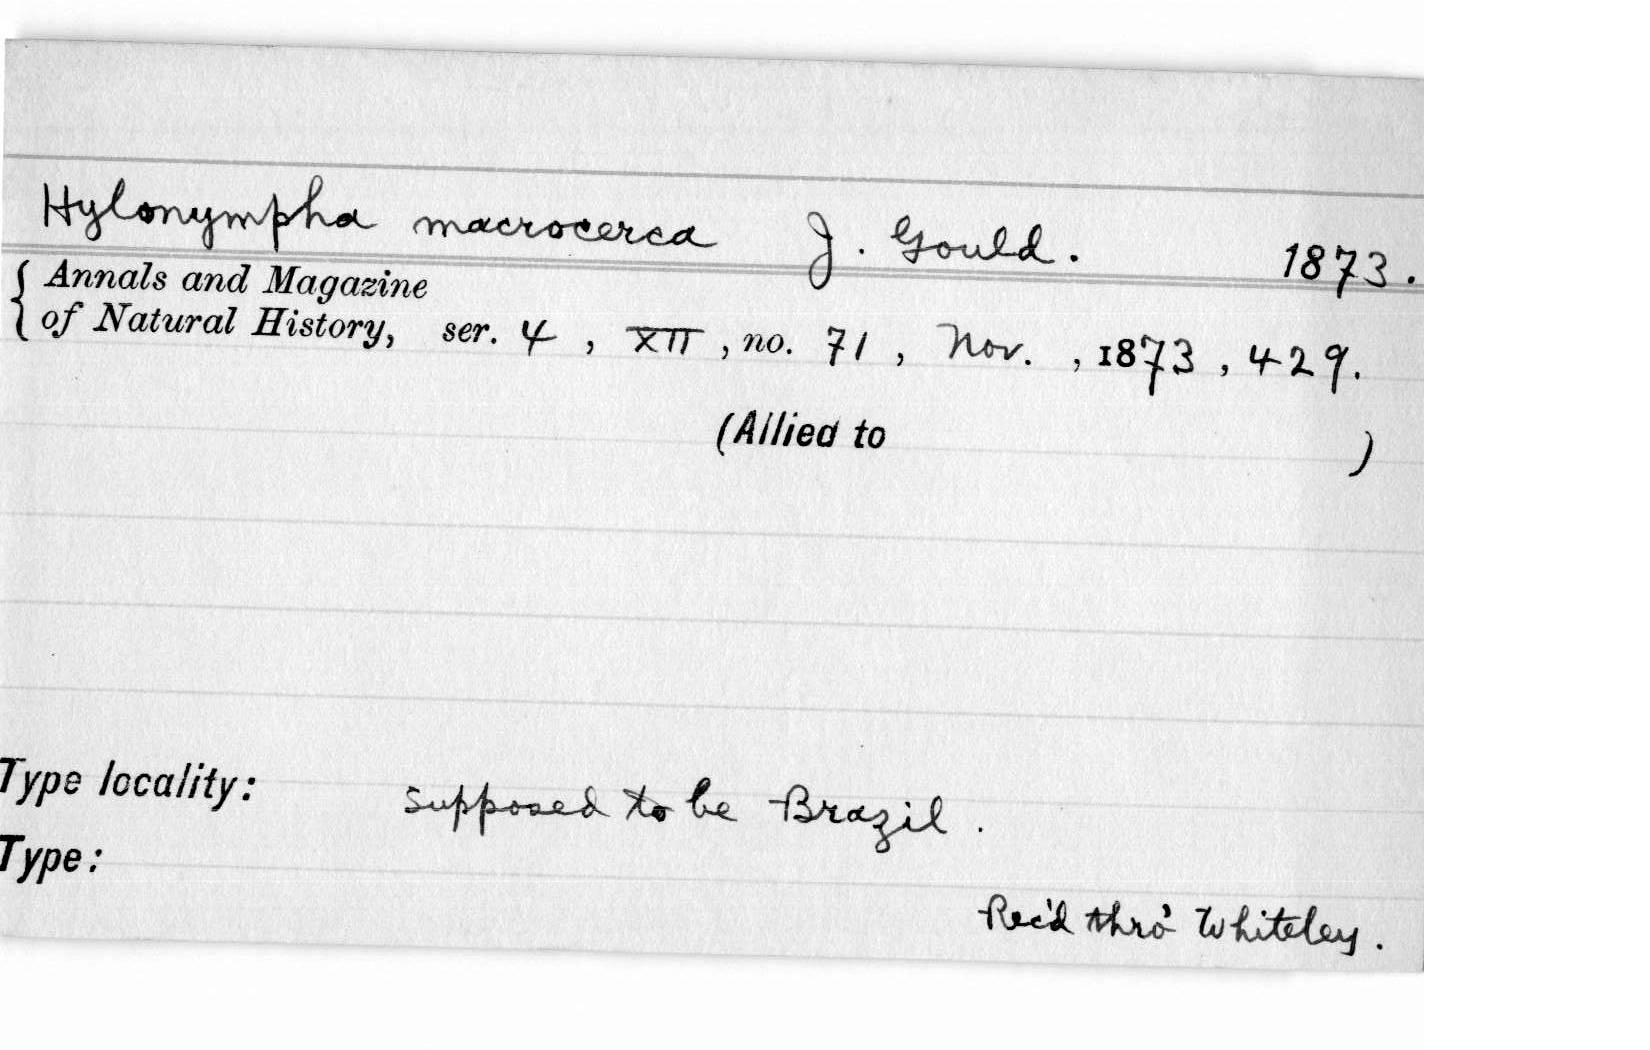 Hylonympha macrocerca J. Gould. 1873.
{ Annals and Magazine
of Natural History, ser. 4, XII, no. 71, Nov., 1873, 429.
(Allied to )
Type locality: supposed to be Brazil.
Type:
Rec'd thro' Whiteley.